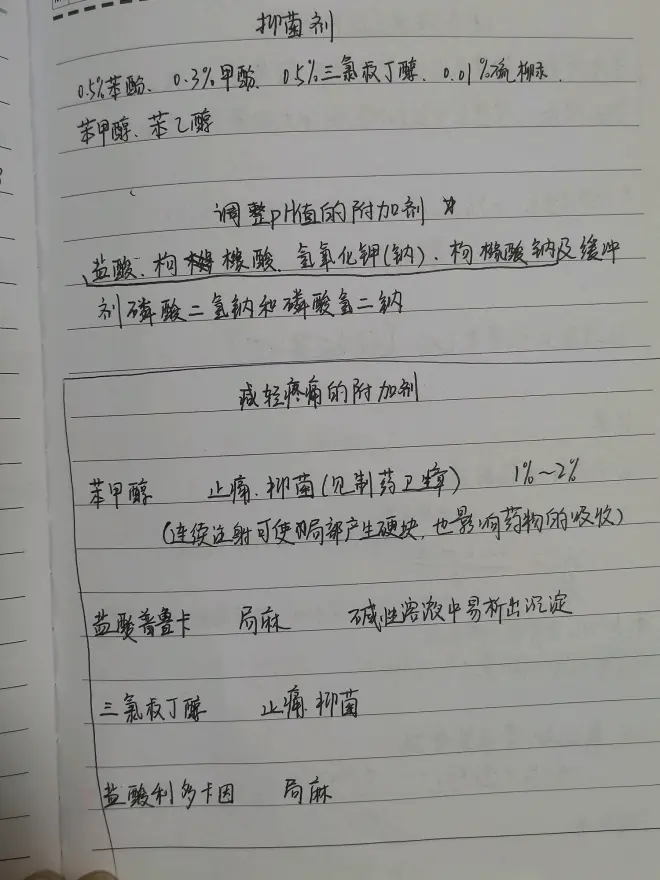 抑菌剂
0.5%苯酚、0.3%甲酚、0.5%三氯叔丁醇、0.01%硫柳汞、
苯甲醇、苯乙醇
调整pH值的附加剂
盐酸、枸橼酸、氢氧化钾(钠)、枸橼酸钠及缓冲
剂磷酸二氢钠和磷酸氢二钠
减轻疼痛的附加剂
苯甲醇 止痛、抑菌(见制药卫章) 1%~2%
(连续注射可使局部产生硬块,也影响药物的吸收)
盐酸普鲁卡 局麻 碱性溶液中易析出沉淀
三氯叔丁醇 止痛、抑菌
盐酸利多卡因 局麻